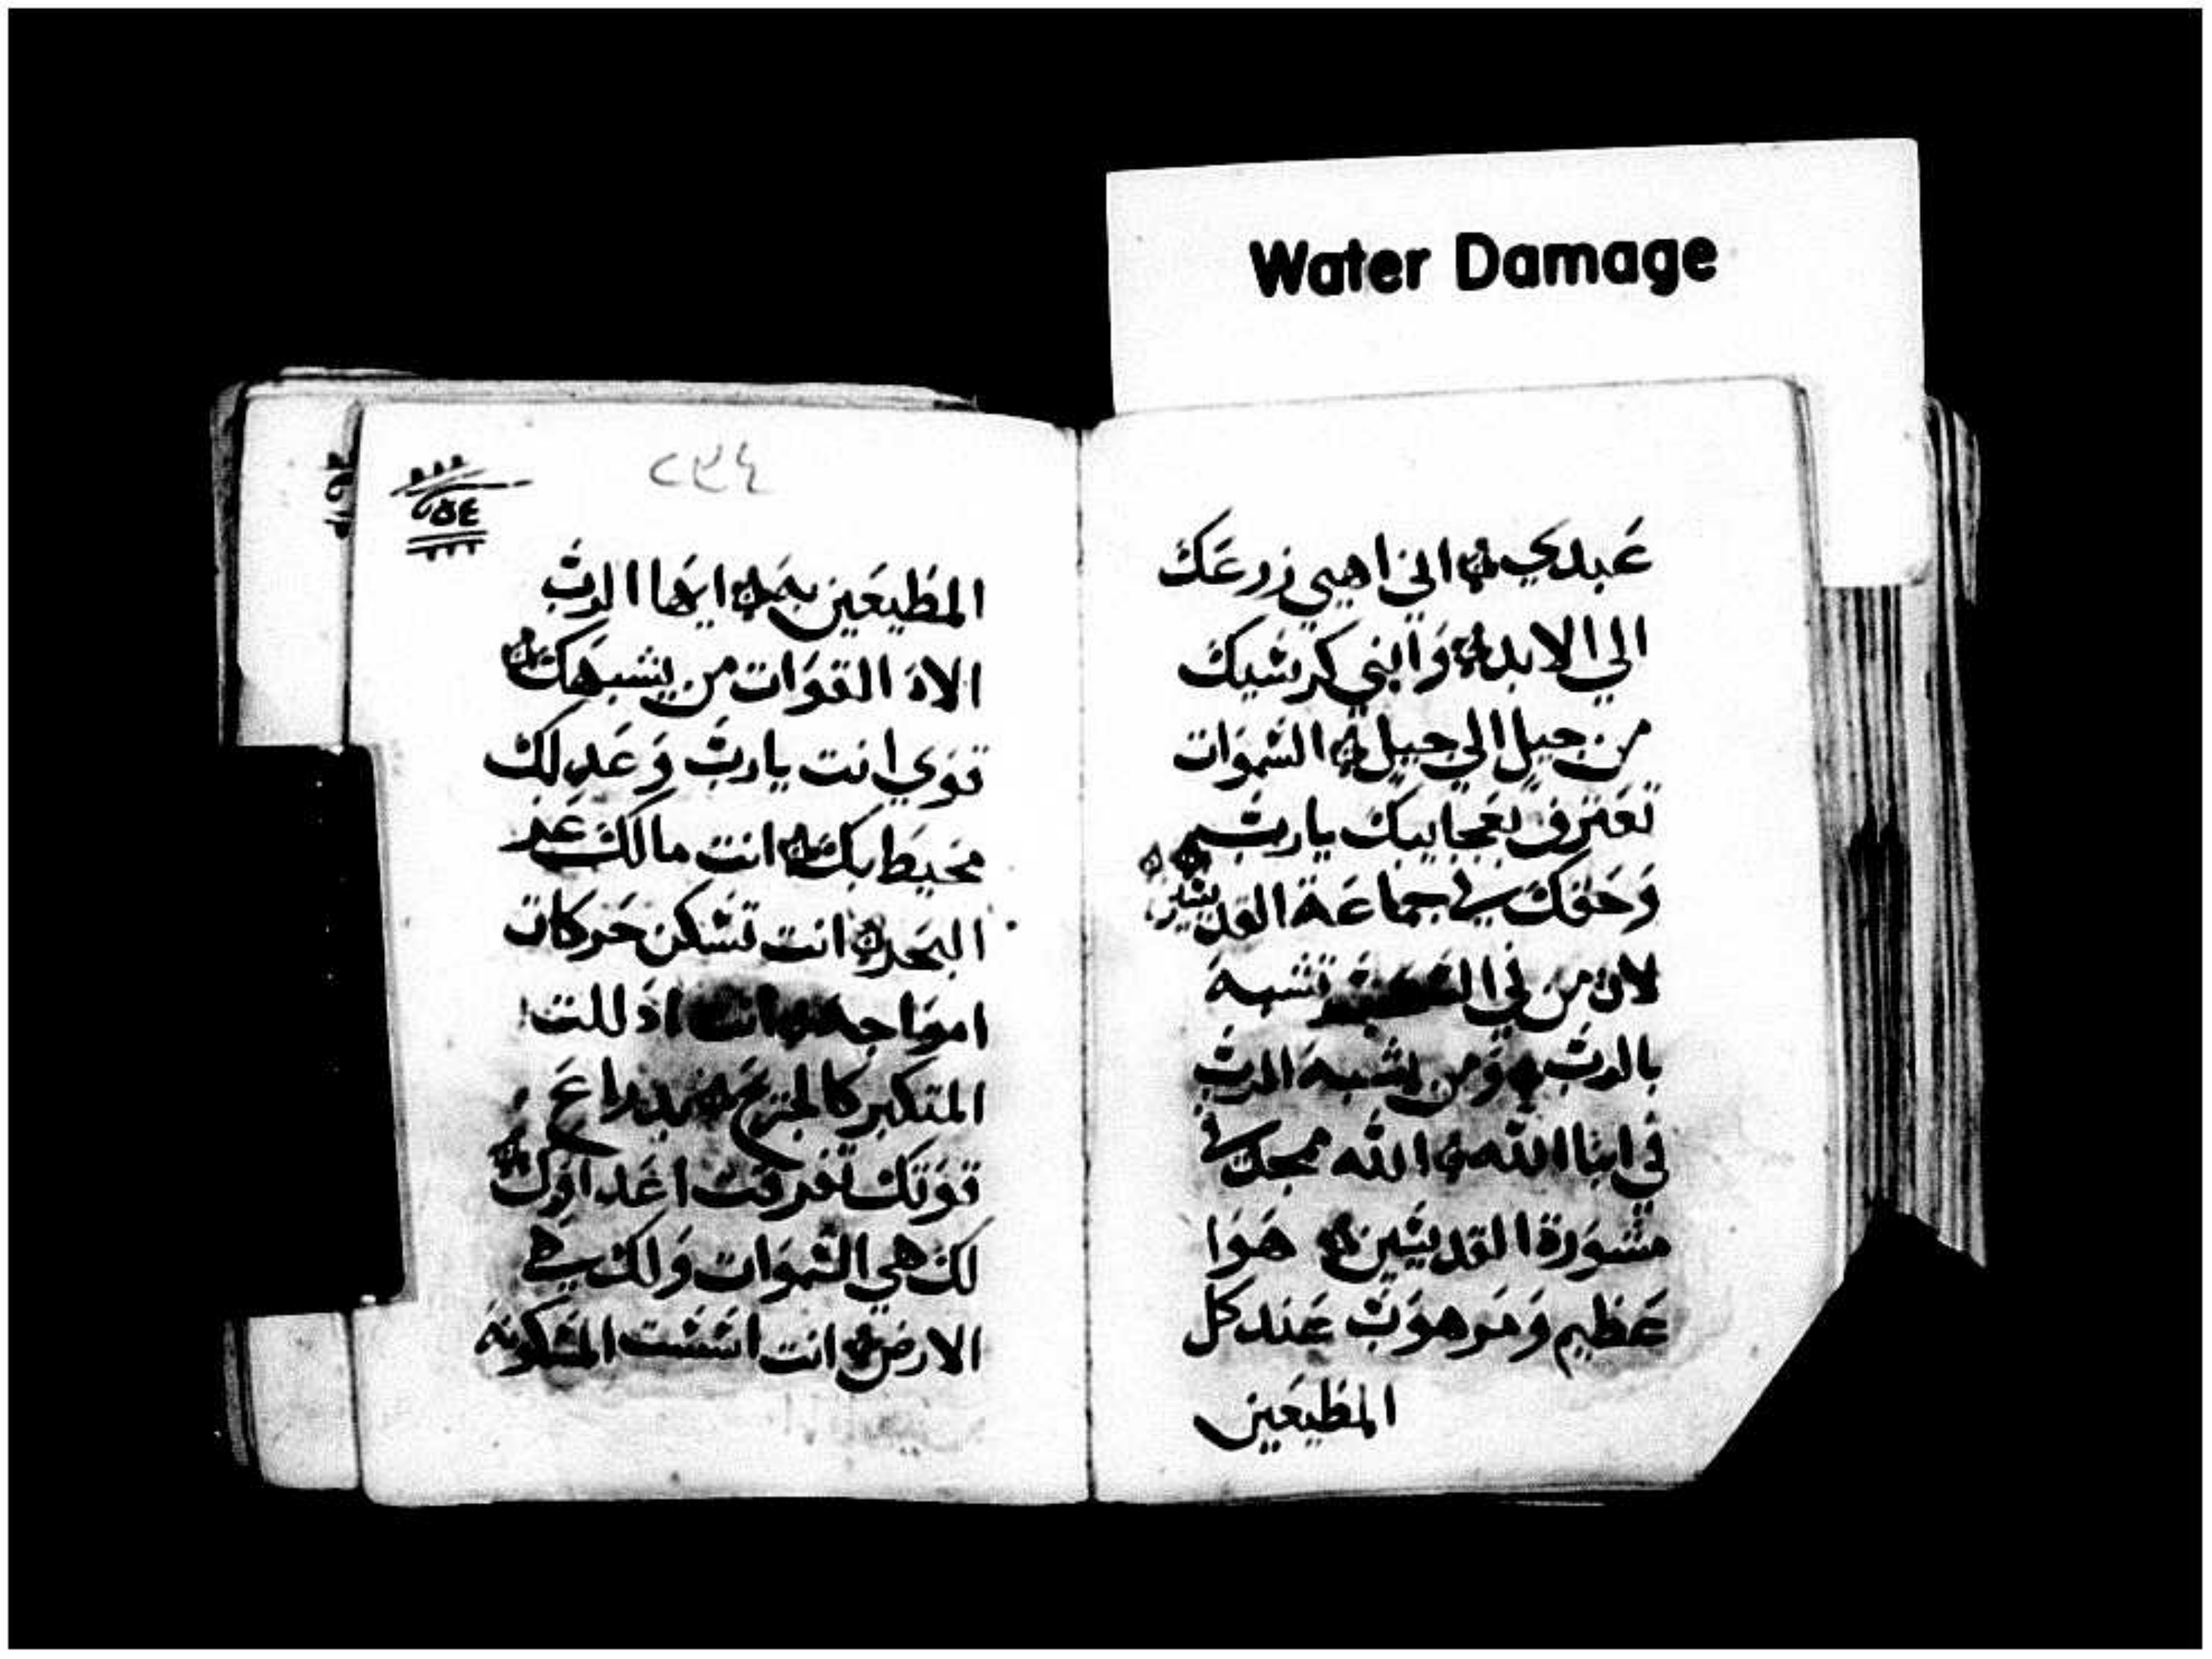 Water Damage
عبدي الي اهيي زرعك
الي الابد وابني كرسيك
من جيل الي جيل السموات
تعترف بعجايبك يارب
وحقك في جماعة القديسين
لان من في تشبه
بالرب ومن يشبه الرب
في ابنا الله الله ممجد في
مشورة القديسين هوا
عظيم ومرهوب عند كل
المطيعين
٢٣٤
المطيعين به ايها الرب
الاه القوات من يشبهك
قوي انت يارب وعدلك
محيط بك انت مالك عز
البحر انت تسكن حركات
امواجه انت اذللت
المتكبر كالجريح بدراع
قوتك تفرقت اعداوك
لك هي السموات ولك هي
الارض انت اسست المسكونه